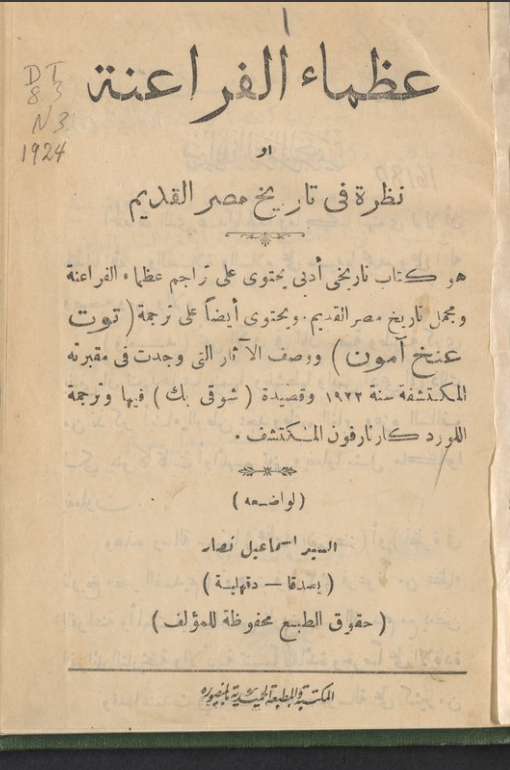 DT
83
N3
1924
عظماء الفراعنة
او
نظرة فى تاريخ مصر القديم
هو كتاب تاريخى أدبى يحتوى على تراجم عظماء الفراعنة
ومجمل تاريخ مصر القديم. ويحتوى أيضاً على ترجمة (توت
عنخ آمون) ووصف الآثار التى وجدت فى مقبرته
المكتشفة سنة ١٩٢٢ وقصيدة (شوقى بك) فيها وترجمة
اللورد كارنارفون المكتشف.
(لواضعه)
السيد اسماعيل نصار
(بصدقا — دقهلية)
(حقوق الطبع محفوظة للمؤلف)
المكتبة والمطبعة بالمنصورة